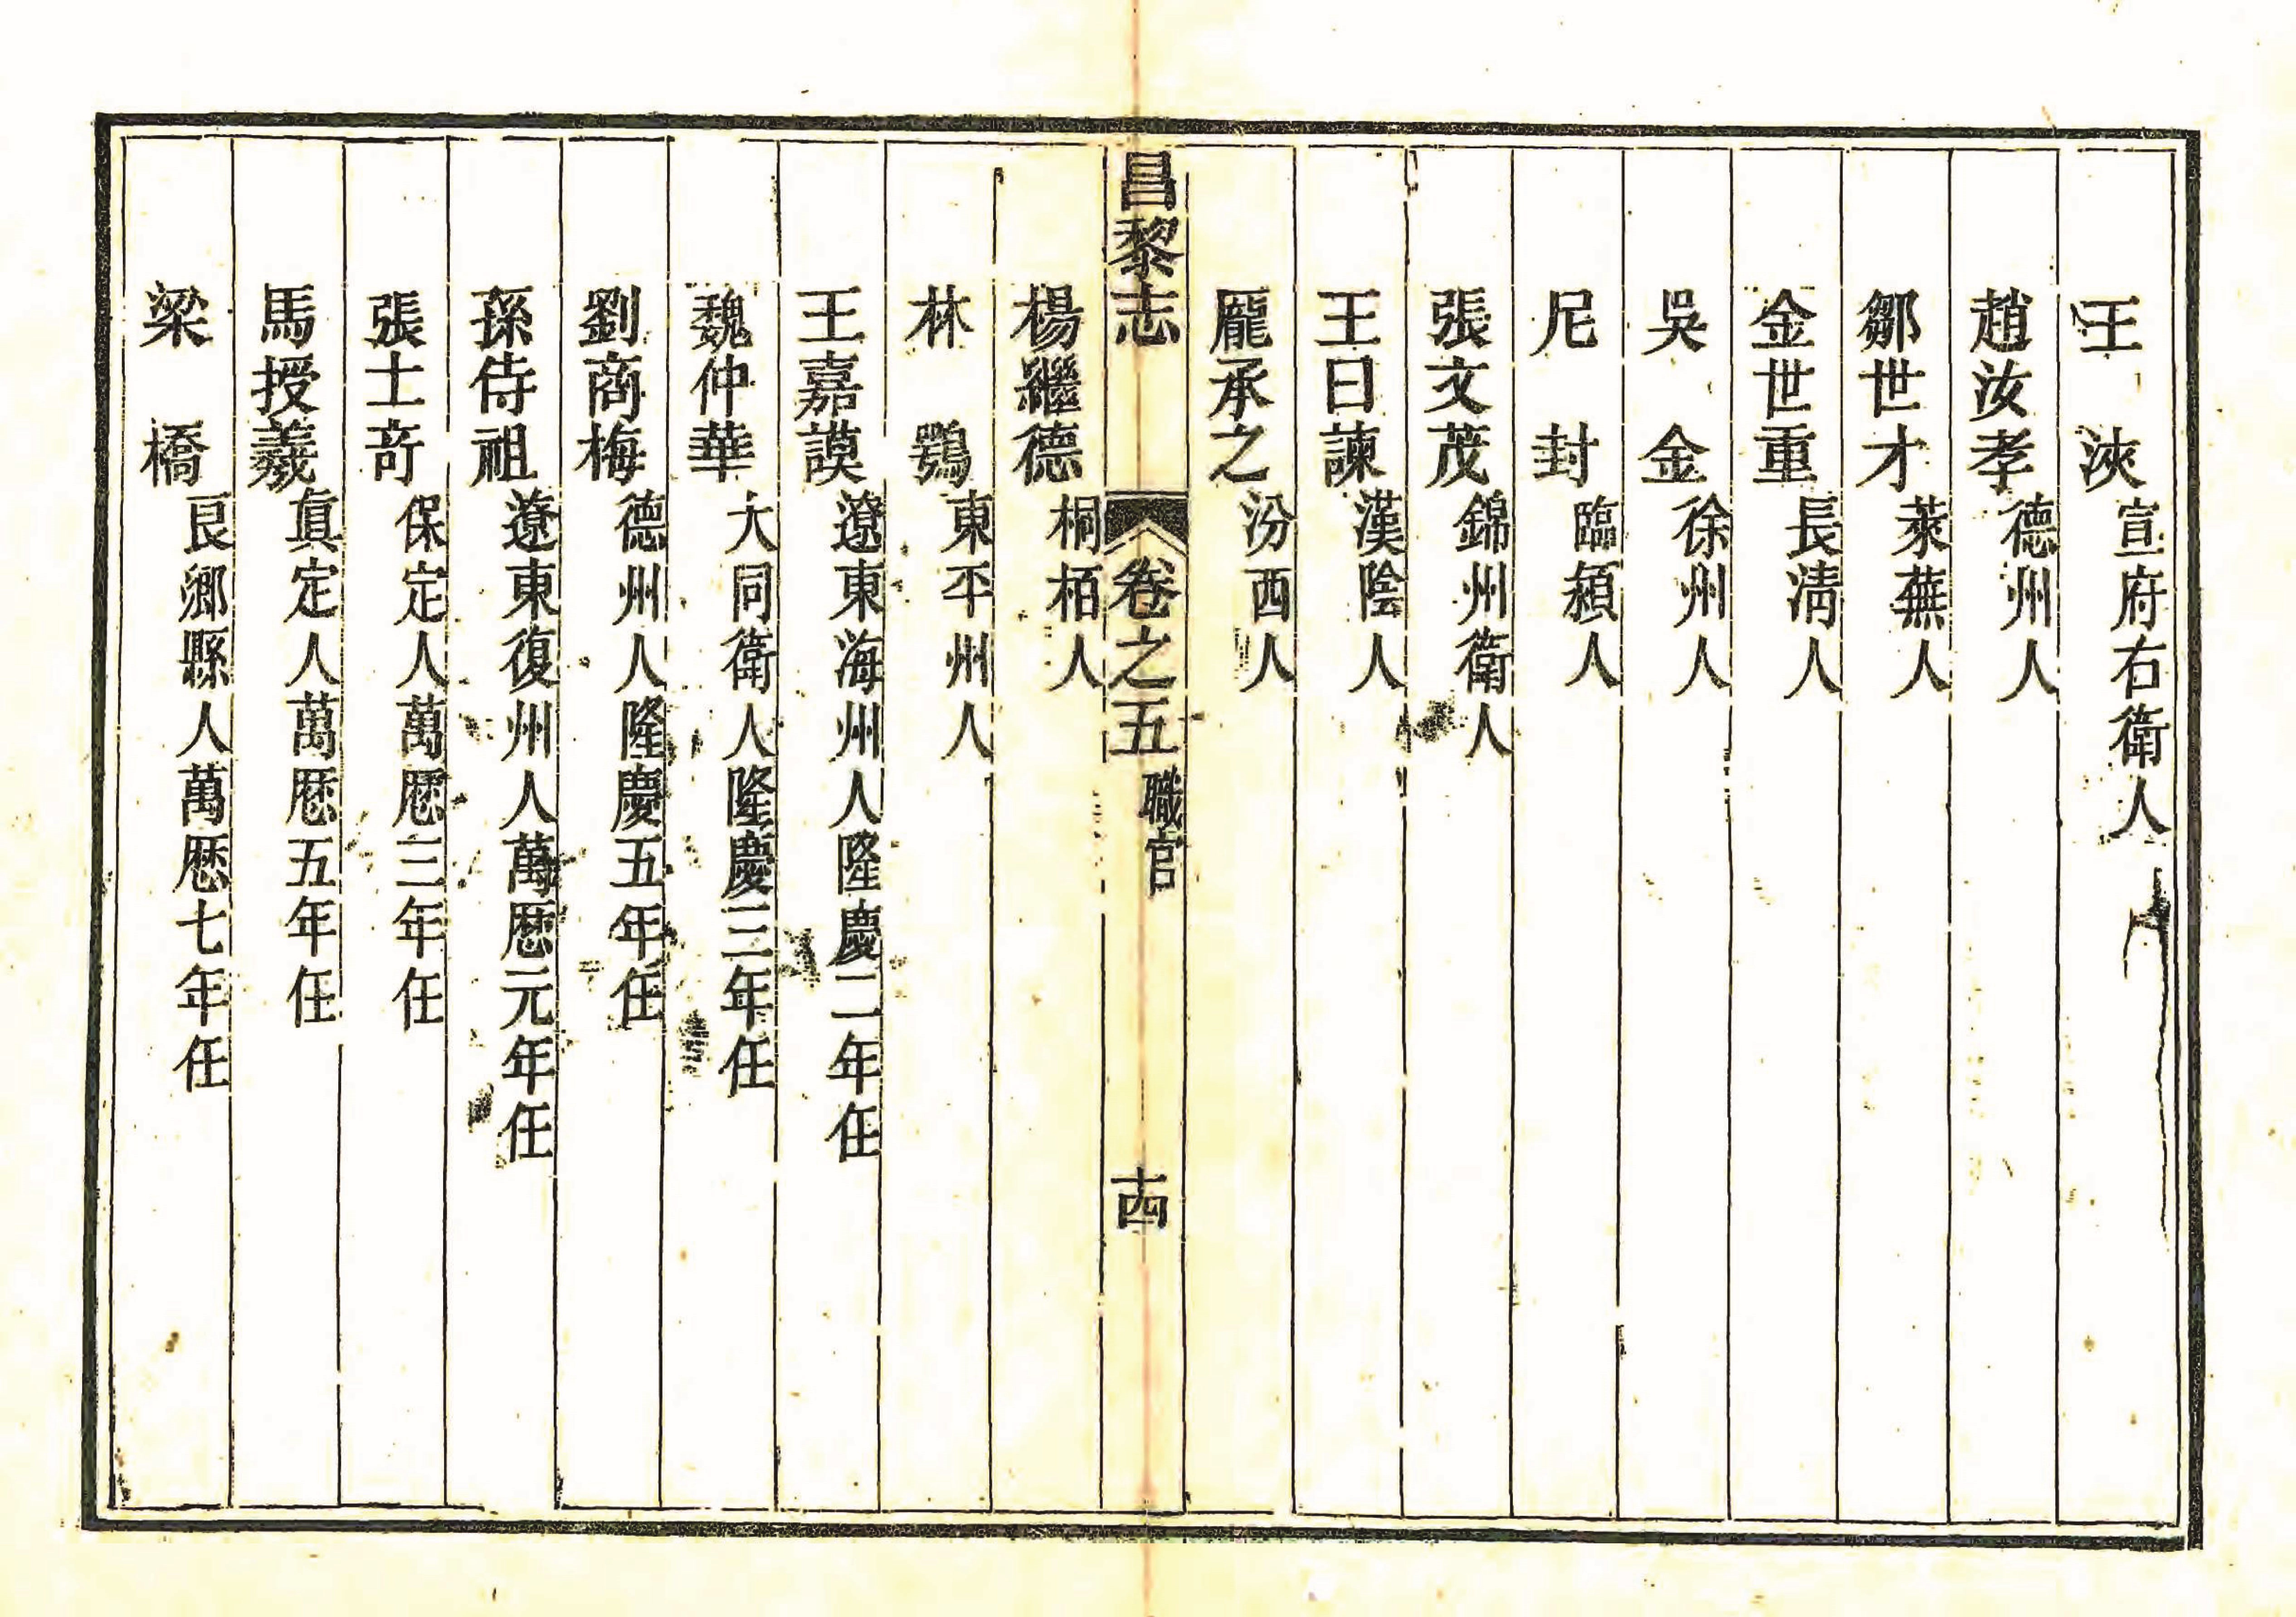 王浹宣府右衛人
趙汝孝德州人
鄒世才萊蕪人
金世重長淸人
吳金徐州人
尼封臨潁人
張文茂錦州衛人
王曰諫漢陰人
龎承之汾西人
昌黎志 卷之五 職官 十四
楊繼德桐栢人
林鶚東平州人
王嘉謨遼東海州人隆慶二年任
魏仲華大同衛人隆慶三年任
劉商梅德州人隆慶五年任
孫侍祖遼東復州人萬厯元年任
張士竒保定人萬厯三年任
馬授羲眞定人萬厯五年任
梁橋良鄉縣人萬厯七年任